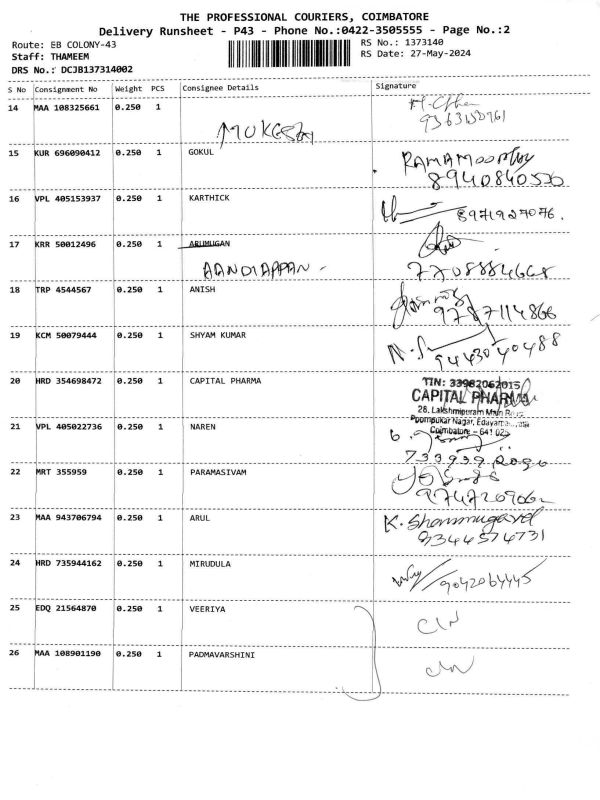 THE PROFESSIONAL COURIERS, COIMBATORE
Delivery Runsheet - P43 - Phone No.:0422-3505555 - Page No.:2
Route: EB COLONY-43
Staff: THAMEEM
DRS No.: DCJB137314002
RS No.: 1373140
RS Date: 27-May-2024
S No Consignment No Weight PCS Consignee Details Signature
14 MAA 108325661 0.250 1
MUKESH
15 KUR 696090412 0.250 1 GOKUL
RAMAMOORTHY
8940840530
16 VPL 405153937 0.250 1 KARTHICK
8971927076.
17 KRR 50012496 0.250 1 ARUMUGAN
AANDIAPPAN -
7708884668
18 TRP 4544567 0.250 1 ANISH
9787114866
19 KCM 50079444 0.250 1 SHYAM KUMAR
9443040488
20 HRD 354698472 0.250 1 CAPITAL PHARMA
TIN: 33982062015
CAPITAL PHARMA
28, Lakshmipuram Main
Poompukar Nagar,
Coimbatore - 641 025
21 VPL 405022736 0.250 1 NAREN
22 MRT 355959 0.250 1 PARAMASIVAM
23 MAA 943706794 0.250 1 ARUL
K. Shanmugavel
9344574731
24 HRD 735944162 0.250 1 MIRUDULA
9042064445
25 EDQ 21564870 0.250 1 VEERIYA
26 MAA 108901190 0.250 1 PADMAVARSHINI